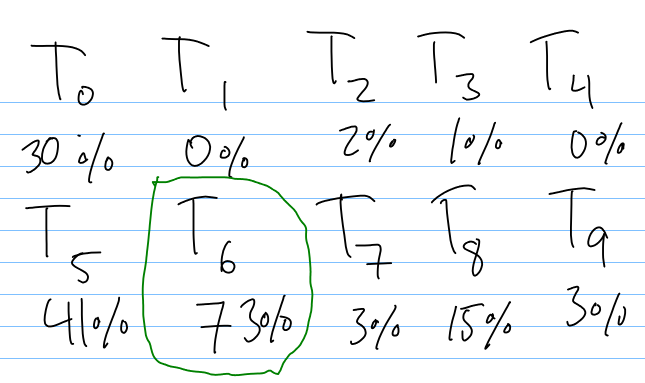 T₀ T₁ T₂ T₃ T₄
30% 0% 2% 1% 0%
T₅ T₆ T₇ T₈ T₉
41% 73% 3% 15% 3%